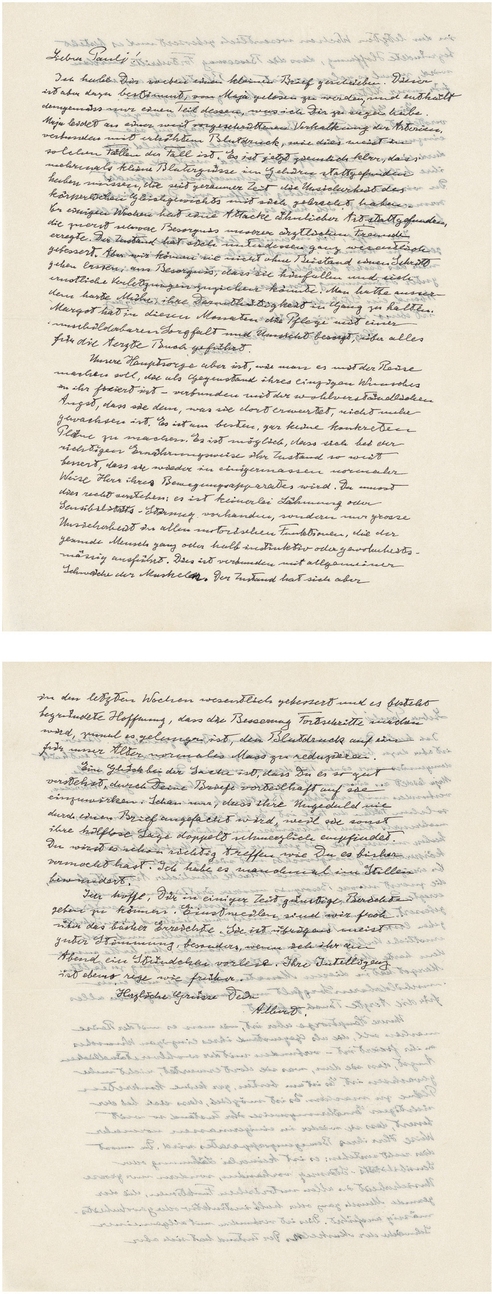 Lieber Paul!
Ich habe Dir vorher einen kleinen Brief geschrieben. Dieser
ist aber dazu bestimmt, von Maja gelesen zu werden, und enthält
demgemäss nur einen Teil dessen, was ich Dir zu sagen habe.
Maja leidet an einer weit vorgeschrittenen Verkalkung der Arterien,
verbunden mit erhöhtem Blutdruck, wie dies meist in
solchen Fällen der Fall ist. Es ist jetzt ziemlich klar, dass
mehrmals kleine Blutergüsse im Gehirn stattgefunden
haben müssen, die seit geraumer Zeit die Unsicherheit des
körperlichen Gleichgewichts mit sich gebracht haben.
Vor einigen Wochen hat eine Attacke ähnlicher Art stattgefunden,
die zuerst schwere Besorgnis unserer ärztlichen Freundin
erregte. Der Zustand hat sich unterdessen ganz wesentlich
gebessert. Aber wir können sie nicht ohne Beistand einen Schritt
gehen lassen, aus Besorgnis, dass sie hinfallen und sich
ernstliche Verletzungen zuziehen könnte. Man hatte ausser-
dem harte Mühe, ihre Darmthätigkeit in Gang zu halten.
Margot hat in diesen Monaten die Pflege mit einer
unschätzbaren Sorgfalt und Umsicht besorgt, über alles
für die Ärzte Buch geführt.
Unsere Hauptsorge aber ist, wie man es mit der Reise
machen soll, die als Gegenstand ihres einzigen Wunsches
in ihr fixiert ist – verbunden mit der wohlverständlichen
Angst, dass sie dem, was sie dort erwartet, nicht mehr
gewachsen ist. Es ist am besten, gar keine konkreten
Pläne zu machen. Es ist möglich, dass sich bei der
richtigen Ernährungsweise ihr Zustand so weit
bessert, dass sie wieder in einigermassen normaler
Weise Herr ihres Bewegungsapparates wird. Du musst
dies recht verstehen; es ist keinerlei Lähmung oder
Sensibilitäts-Störung vorhanden, sondern nur grosse
Unsicherheit in allen motorischen Funktionen, die der
gesunde Mensch ganz oder halb instinktiv oder gewohnheits-
mässig ausführt. Dies ist verbunden mit allgemeiner
Schwäche der Muskeln. Der Zustand hat sich aber
in den letzten Wochen wesentlich gebessert und es besteht
begründete Hoffnung, dass die Besserung Fortschritte machen
wird, zumal es gelungen ist, den Blutdruck auf ein
für unser Alter normales Mass zu reduzieren.
Ein Glück bei der Sache ist, dass Du es so gut
verstehst, durch Deine Briefe vorteilhaft auf sie
einzuwirken. Schau nur, dass ihre Ungeduld nie
durch einen Brief angefacht wird, weil sie sonst
ihre hilflose Lage doppelt schmerzlich empfindet.
Du wirst es schon richtig treffen wie Du es bisher
vermocht hast. Ich habe es manchmal im Stillen
bewundert.
Ich hoffe, Dir in einiger Zeit günstige Berichte
geben zu können. Einstweilen sind wir froh
über das bisher Erreichte. Sie ist übrigens meist
guter Stimmung, besonders, wenn ich ihr am
Abend ein Stündchen vorlese. Ihre Intelligenz
ist ebenso rege wie früher.
Herzliche Grüsse Dein
Albert.